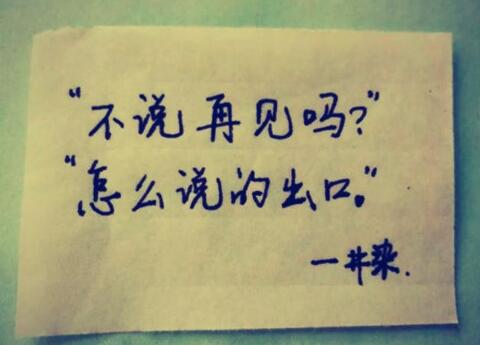 "不说再见吗?"
"怎么说的出口。"
一井染.